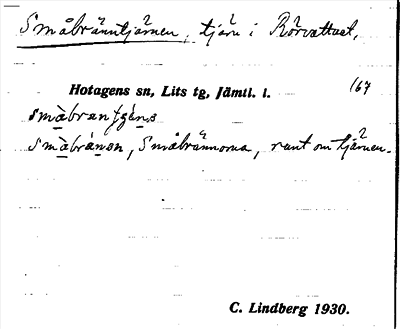 Småbränntjärnen, tjärn i Rörvattnet,
Hotagens sn, Lits tg, Jämtl. l.
167
Småbrännorna, runt om tjärnen.
C. Lindberg 1930.